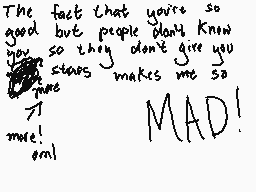 The fact that you're so
good but people don't know
you so they don't give you
more stars makes me so
MAD!
more!